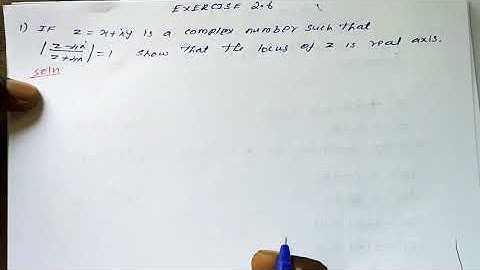 EXERCISE 2.6
1) IF z = x+iy is a complex number such that
|z-4i/z+4i| = 1 show that the locus of z is real axis.
soln